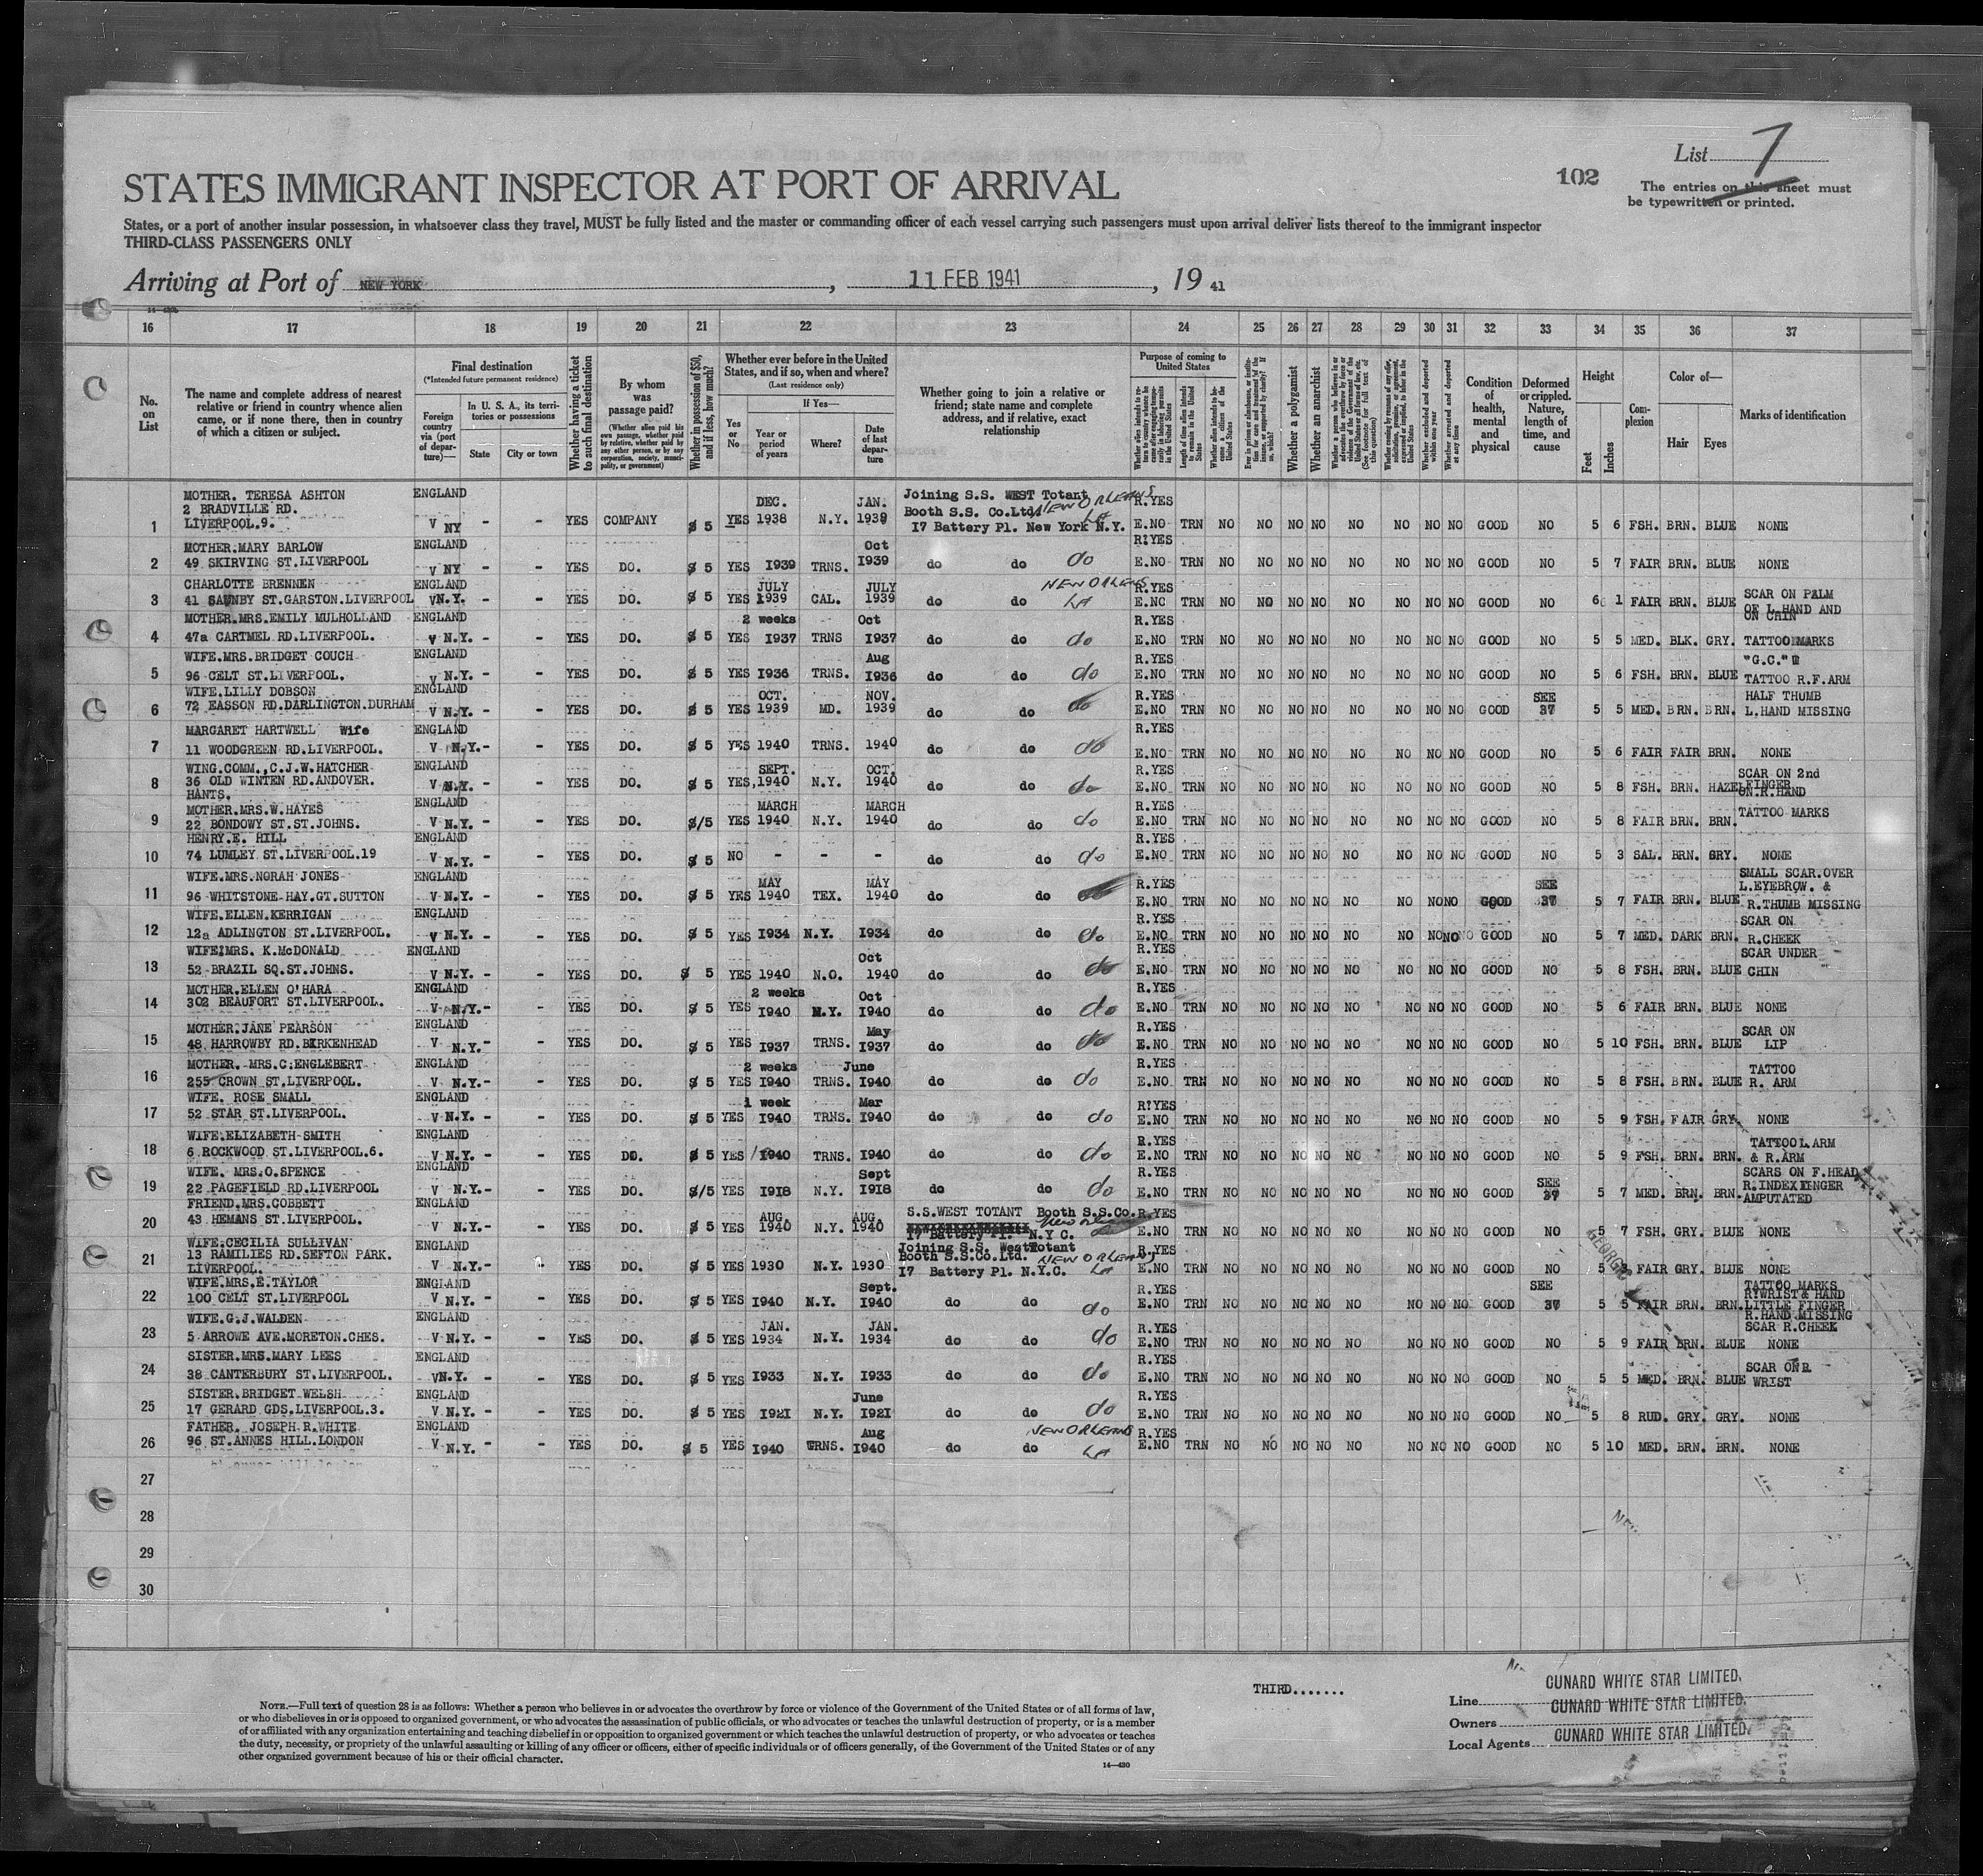 List 7
102
The entries on this sheet must
be typewritten or printed.
STATES IMMIGRANT INSPECTOR AT PORT OF ARRIVAL
States, or a port of another insular possession, in whatsoever class they travel, MUST be fully listed and the master or commanding officer of each vessel carrying such passengers must upon arrival deliver lists thereof to the immigrant inspector
THIRD-CLASS PASSENGERS ONLY
Arriving at Port of NEW YORK, 11 FEB 1941, 19 41
16 17 18 19 20 21 22 23 24 25 26 27 28 29 30 31 32 33 34 35 36 37
No. on List
The name and complete address of nearest relative or friend in country whence alien came, or if none there, then in country of which a citizen or subject.
Final destination
(*Intended future permanent residence)
Foreign country via (port of departure)—
In U. S. A., its territories or possessions
State
City or town
Whether having a ticket to such final destination
By whom was passage paid?
(Whether alien paid his own passage, whether paid by relative, whether paid by any other person, or by any corporation, society, municipality, or government)
Whether in possession of $50, and if less, how much?
Whether ever before in the United States, and if so, when and where?
(Last residence only)
Yes or No
If Yes—
Year or period of years
Where?
Date of last departure
Whether going to join a relative or friend; state name and complete address, and if relative, exact relationship
Purpose of coming to United States
Length of time alien intends to remain in the United States
Whether alien intends to become a citizen of the United States
Whether a polygamist
Whether an anarchist
Whether excluded and deported within one year
Whether arrested and deported at any time
Condition of health, mental and physical
Deformed or crippled. Nature, length of time, and cause
Height
Feet
Inches
Complexion
Color of—
Hair
Eyes
Marks of identification
1 MOTHER. TERESA ASHTON 2 BRADVILLE RD. LIVERPOOL.9. ENGLAND V NY - - YES COMPANY $ 5 YES DEC. 1938 N.Y. JAN. 1939 Joining S.S. WEST Totant Booth S.S. Co.Ltd. 17 Battery Pl. New York N.Y. NEW ORLEANS LA R.YES E.NO TRN NO NO NO NO NO NO NO NO GOOD NO 5 6 FSH. BRN. BLUE NONE
2 MOTHER.MARY BARLOW 49 SKIRVING ST.LIVERPOOL ENGLAND V NY - - YES DO. $ 5 YES 1939 TRNS. Oct 1939 do do do R.YES E.NO TRN NO NO NO NO NO NO NO NO GOOD NO 5 7 FAIR BRN. BLUE NONE
3 CHARLOTTE BRENNEN 41 SAUNBY ST.GARSTON.LIVERPOOL ENGLAND V N.Y. - - YES DO. $ 5 YES JULY 1939 CAL. JULY 1939 do do NEW ORLEANS LA R.YES E.NO TRN NO NO NO NO NO NO NO NO GOOD NO 6 1 FAIR BRN. BLUE SCAR ON PALM OF L.HAND AND ON CHIN
4 MOTHER.MRS.EMILY MULHOLLAND 47a CARTMEL RD.LIVERPOOL. ENGLAND V N.Y. - - YES DO. $ 5 YES 2 weeks 1937 TRNS Oct 1937 do do do R.YES E.NO TRN NO NO NO NO NO NO NO NO GOOD NO 5 5 MED. BLK. GRY. TATTOO MARKS
5 WIFE.MRS.BRIDGET COUCH 96 CELT ST.LIVERPOOL. ENGLAND V N.Y. - - YES DO. $ 5 YES 1936 TRNS. Aug 1936 do do do R.YES E.NO TRN NO NO NO NO NO NO NO NO GOOD NO 5 6 FSH. BRN. BLUE "G.C." TATTOO R.F.ARM
6 WIFE.LILLY DOBSON 72 EASSON RD.DARLINGTON.DURHAM ENGLAND V N.Y. - - YES DO. $ 5 YES OCT. 1939 MD. NOV. 1939 do do do R.YES E.NO TRN NO NO NO NO NO NO NO NO GOOD SEE 37 5 5 MED. BRN. BRN. HALF THUMB L.HAND MISSING
7 MARGARET HARTWELL Wife 11 WOODGREEN RD.LIVERPOOL. ENGLAND V N.Y.- - YES DO. $ 5 YES 1940 TRNS. 1940 do do do R.YES E.NO TRN NO NO NO NO NO NO NO NO GOOD NO 5 6 FAIR FAIR BRN. NONE
8 WING.COMM.,C.J.W.HATCHER 36 OLD WINTEN RD.ANDOVER. HANTS. ENGLAND V N.Y. - - YES DO. $ 5 YES, SEPT. 1940 N.Y. OCT. 1940 do do do R.YES E.NO TRN NO NO NO NO NO NO NO NO GOOD NO 5 8 FSH. BRN. HAZEL SCAR ON 2nd FINGER ON.R.HAND
9 MOTHER.MRS.W.HAYES 22 BONDOWY ST.ST.JOHNS. ENGLAND V N.Y. - - YES DO. $/5 YES MARCH 1940 N.Y. MARCH 1940 do do do R.YES E.NO TRN NO NO NO NO NO NO NO NO GOOD NO 5 8 FAIR BRN. BRN. TATTOO MARKS
10 HENRY.E. HILL 74 LUMLEY ST.LIVERPOOL.19 ENGLAND V N.Y. - - YES DO. $ 5 NO - - - do do do R.YES E.NO TRN NO NO NO NO NO NO NO NO GOOD NO 5 3 SAL. BRN. GRY. NONE
11 WIFE.MRS.NORAH JONES 96 WHITSTONE HAY.GT.SUTTON ENGLAND V N.Y. - - YES DO. $ 5 YES MAY 1940 TEX. MAY 1940 do do do R.YES E.NO TRN NO NO NO NO NO NO NO NO GOOD SEE 37 5 7 FAIR BRN. BLUE SMALL SCAR.OVER L.EYEBROW. & R.THUMB MISSING
12 WIFE.ELLEN.KERRIGAN 12a ADLINGTON ST.LIVERPOOL. ENGLAND V N.Y. - - YES DO. $ 5 YES 1934 N.Y. 1934 do do do R.YES E.NO TRN NO NO NO NO NO NO NO NO GOOD NO 5 7 MED. DARK BRN. SCAR ON R.CHEEK
13 WIFE.MRS. K.McDONALD 52 BRAZIL SQ.ST.JOHNS. ENGLAND V N.Y. - - YES DO. $ 5 YES 1940 N.O. Oct 1940 do do do R.YES E.NO TRN NO NO NO NO NO NO NO NO GOOD NO 5 8 FSH. BRN. BLUE SCAR UNDER CHIN
14 MOTHER.ELLEN O'HARA 302 BEAUFORT ST.LIVERPOOL. ENGLAND V N.Y.- - YES DO. $ 5 YES 2 weeks 1940 N.Y. Oct 1940 do do do R.YES E.NO TRN NO NO NO NO NO NO NO NO GOOD NO 5 6 FAIR BRN. BLUE NONE
15 MOTHER.JANE PEARSON 48 HARROWBY RD.BIRKENHEAD ENGLAND V N.Y.- - YES DO. $ 5 YES 1937 TRNS. May 1937 do do do R.YES E.NO TRN NO NO NO NO NO NO NO NO GOOD NO 5 10 FSH. BRN. BLUE SCAR ON LIP
16 MOTHER. MRS.C.ENGLEBERT 255 CROWN ST.LIVERPOOL. ENGLAND V N.Y.- - YES DO. $ 5 YES 2 weeks 1940 TRNS. June 1940 do do do R.YES E.NO TRN NO NO NO NO NO NO NO NO GOOD NO 5 8 FSH. BRN. BLUE TATTOO R. ARM
17 WIFE. ROSE SMALL 52 STAR ST.LIVERPOOL. ENGLAND V N.Y.- - YES DO. $ 5 YES 1 week 1940 TRNS. Mar 1940 do do do R.YES E.NO TRN NO NO NO NO NO NO NO NO GOOD NO 5 9 FSH. FAIR GRY. NONE
18 WIFE.ELIZABETH SMITH 6 ROCKWOOD ST.LIVERPOOL.6. ENGLAND V N.Y.- - YES DO. $ 5 YES 1940 TRNS. 1940 do do do R.YES E.NO TRN NO NO NO NO NO NO NO NO GOOD NO 5 9 FSH. BRN. BRN. TATTOO L.ARM & R.ARM
19 WIFE. MRS.O.SPENCE 22 PAGEFIELD RD.LIVERPOOL ENGLAND V N.Y.- - YES DO. $/5 YES 1918 N.Y. Sept 1918 do do do R.YES E.NO TRN NO NO NO NO NO NO NO NO GOOD SEE 37 5 7 MED. BRN. BRN. SCARS ON F.HEAD R.INDEX FINGER AMPUTATED
20 FRIEND.MRS.COBBETT 43 HEMANS ST.LIVERPOOL. ENGLAND V N.Y.- - YES DO. $ 5 YES AUG. 1940 N.Y. AUG. 1940 S.S.WEST TOTANT Booth S.S.Co. 17 Battery Pl. N.Y C. New Orleans R.YES E.NO TRN NO NO NO NO NO NO NO NO GOOD NO 5 7 FSH. GRY. BLUE NONE
21 WIFE.CECILIA SULLIVAN 13 RAMILIES RD.SEFTON PARK. LIVERPOOL. ENGLAND V N.Y.- - YES DO. $ 5 YES 1930 N.Y. 1930 Joining S.S. West Totant Booth S.S.Co.Ltd. 17 Battery Pl. N.Y.C. NEW ORLEANS LA R.YES E.NO TRN NO NO NO NO NO NO NO NO GOOD NO 5 FAIR GRY. BLUE NONE
22 WIFE.MRS.E.TAYLOR 100 CELT ST.LIVERPOOL ENGLAND V N.Y. - - YES DO. $ 5 YES 1940 N.Y. Sept. 1940 do do do R.YES E.NO TRN NO NO NO NO NO NO NO NO GOOD SEE 37 5 5 FAIR BRN. BRN. TATTOO MARKS R.WRIST & HAND LITTLE FINGER R.HAND MISSING SCAR R.CHEEK
23 WIFE.G.J.WALDEN 5 ARROWE AVE.MORETON.CHES. ENGLAND V N.Y. - - YES DO. $ 5 YES JAN. 1934 N.Y. JAN. 1934 do do do R.YES E.NO TRN NO NO NO NO NO NO NO NO GOOD NO 5 9 FAIR BRN. BLUE NONE
24 SISTER.MRS.MARY LEES 38 CANTERBURY ST.LIVERPOOL. ENGLAND V N.Y. - - YES DO. $ 5 YES 1933 N.Y. 1933 do do do R.YES E.NO TRN NO NO NO NO NO NO NO NO GOOD NO 5 5 MED. BRN. BLUE SCAR ON R. WRIST
25 SISTER.BRIDGET WELSH 17 GERARD GDS.LIVERPOOL.3. ENGLAND V N.Y. - - YES DO. $ 5 YES 1921 N.Y. June 1921 do do do R.YES E.NO TRN NO NO NO NO NO NO NO NO GOOD NO 5 8 RUD. GRY. GRY. NONE
26 FATHER. JOSEPH R.WHITE 96 ST.ANNES HILL.LONDON ENGLAND V N.Y. - - YES DO. $ 5 YES 1940 TRNS. Aug 1940 do do NEW ORLEANS LA R.YES E.NO TRN NO NO NO NO NO NO NO NO GOOD NO 5 10 MED. BRN. BRN. NONE
27
28
29
30
GEORGE
THIRD.......
NOTE.—Full text of question 28 is as follows: Whether a person who believes in or advocates the overthrow by force or violence of the Government of the United States or of all forms of law,
or who disbelieves in or is opposed to organized government, or who advocates the assassination of public officials, or who advocates or teaches the unlawful destruction of property, or is a member
of or affiliated with any organization entertaining and teaching disbelief in or opposition to organized government or which teaches the unlawful destruction of property, or who advocates or teaches
the duty, necessity, or propriety of the unlawful assaulting or killing of any officer or officers, either of specific individuals or of officers generally, of the Government of the United States or of any
other organized government because of his or their official character.
14—430
Line CUNARD WHITE STAR LIMITED.
Owners CUNARD WHITE STAR LIMITED.
Local Agents CUNARD WHITE STAR LIMITED.